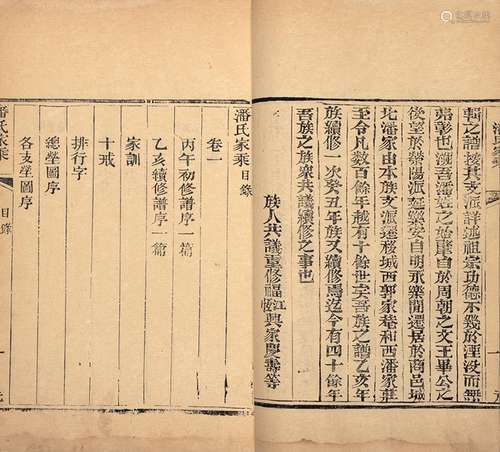 輯之譜按其支派詳述祖宗功德不幾於湮沒而無
彰也哉吾潘姓之始肇自於周朝之文王畢公之
後望於滎陽派延藥安自明永樂間遷居於商邑城
北潘家由本族支派遷移城西郭家菴和西潘家莊
至今凡數百餘年越有十餘世矣吾族之譜乙亥年
族續修一次癸丑年族又續修焉迄今有四十餘年
吾族之族衆共議續修之事也
族人共議重修福江興家慶壽等
潘氏家乘
潘氏家乘目錄
卷一
丙午初修譜序一篇
乙亥續修譜序一篇
家訓
十戒
排行字
總塋圖序
各支塋圖序
潘氏家乘
目錄